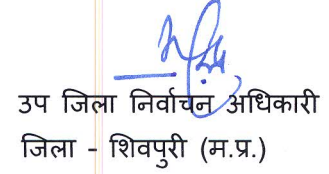 उप जिला निर्वाचन अधिकारी
जिला - शिवपुरी (म.प्र.)